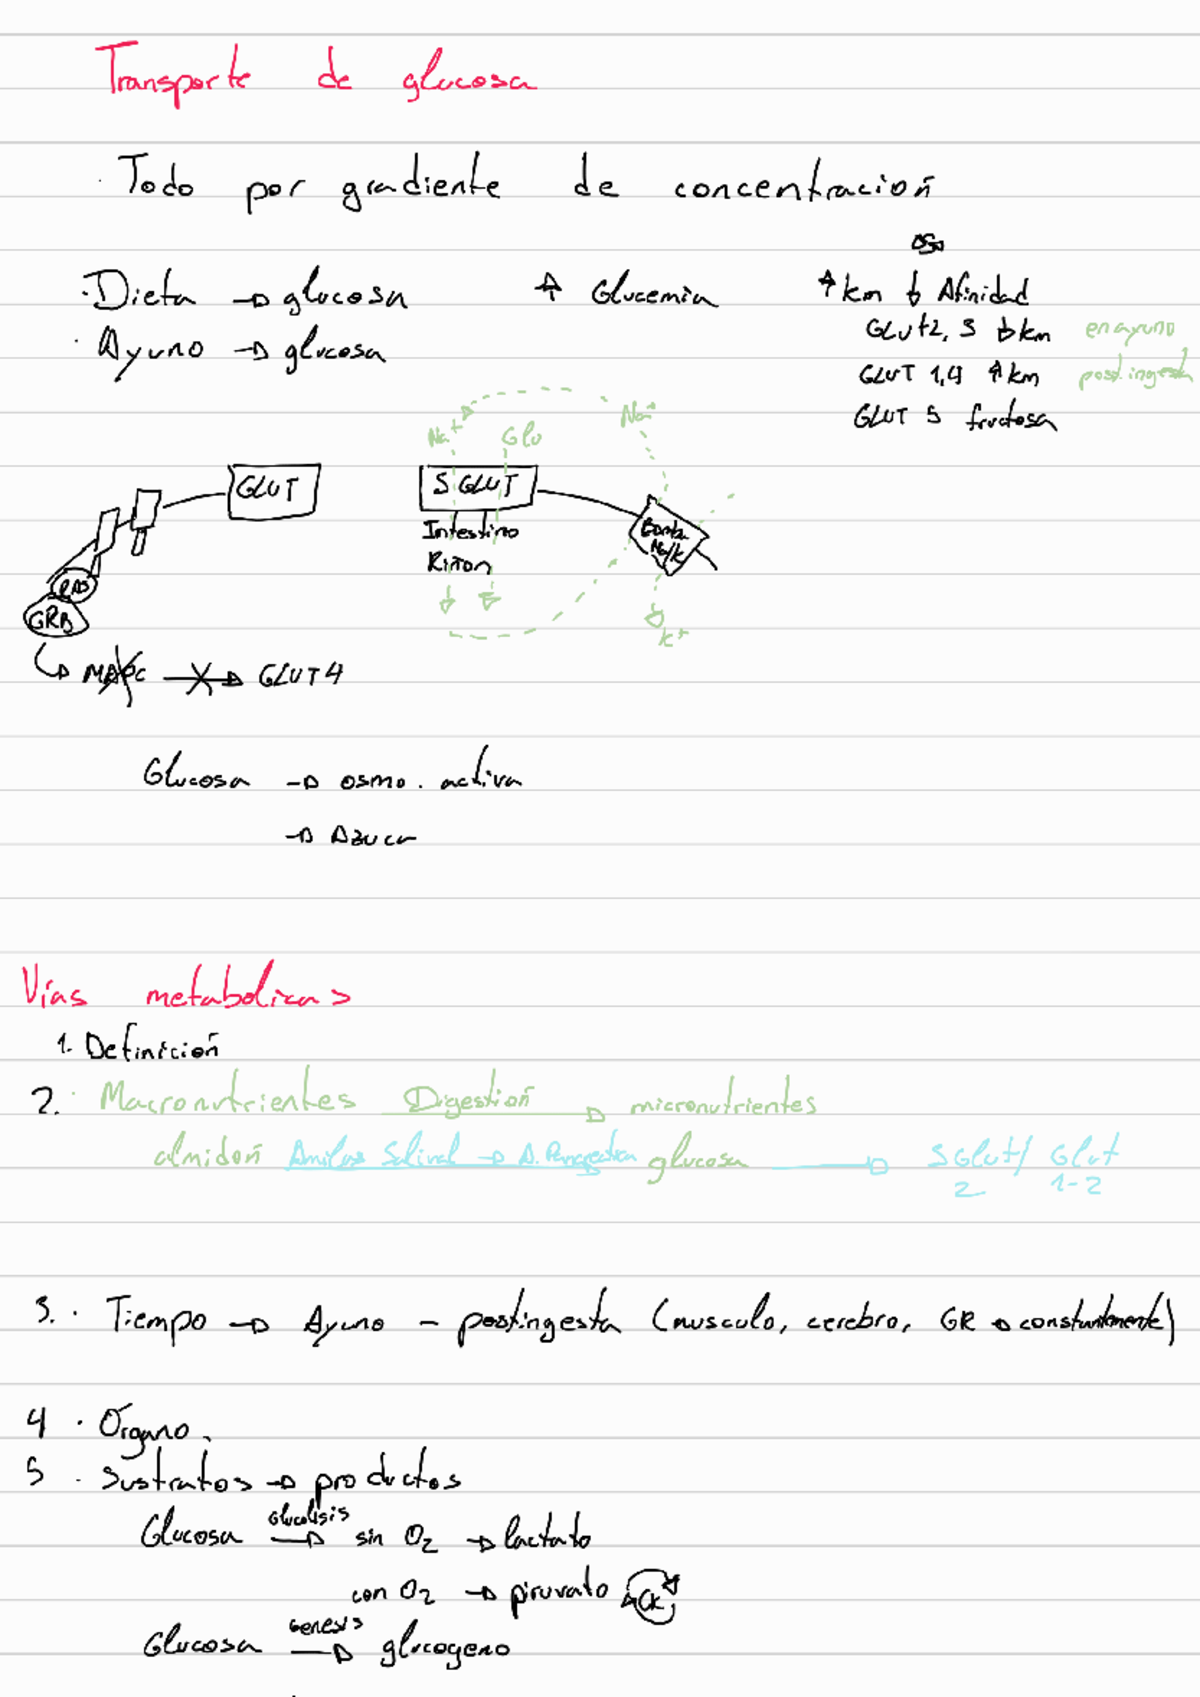 Transporte de glucosa
· Todo por gradiente de concentración
· Dieta → glucosa ↑ Glucemia
· Ayuno → glucosa
↑ km ↓ Afinidad
GLUT2, 3 ↓ km en ayuno
GLUT 1,4 ↑ km postingesta
GLUT 5 fructosa
Na+ Glu Na+
GLUT
SGLUT
Bomba Na/K
Intestino
Riñon
K+
RAS
GRB
↳ MAPC → GLUT4
Glucosa → osmo. activa
→ Azucar
Vías metabolicas
1. Definición
2. · Macronutrientes Digestión → micronutrientes
almidoñ Amilas Salival → A. Pancreatica glucosa → SGlut/ Glut
2 1-2
3. · Tiempo → Ayuno - postingesta (musculo, cerebro, GR → constantemente)
4 · Órgano.
5 · Sustratos → productos
Glucosa Glucolisis → sin O2 → lactato
con O2 → piruvato CK
Glucosa Genesis → glucogeno